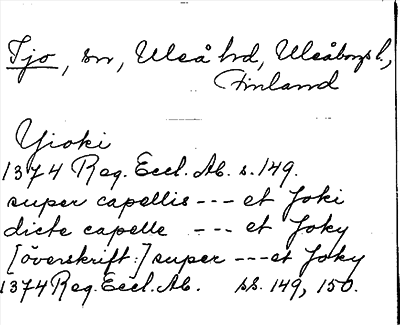 Ijo, sn, Uleå hd, Uleåborgs l.,
Finland
Yioki
1374 Reg. Eccl. Ab. s. 149.
super capellis --- et Joki
dicte capelle --- et Joky
[överskrift:] super --- et Joky
1374 Reg. Eccl. Ab. ss. 149, 150.